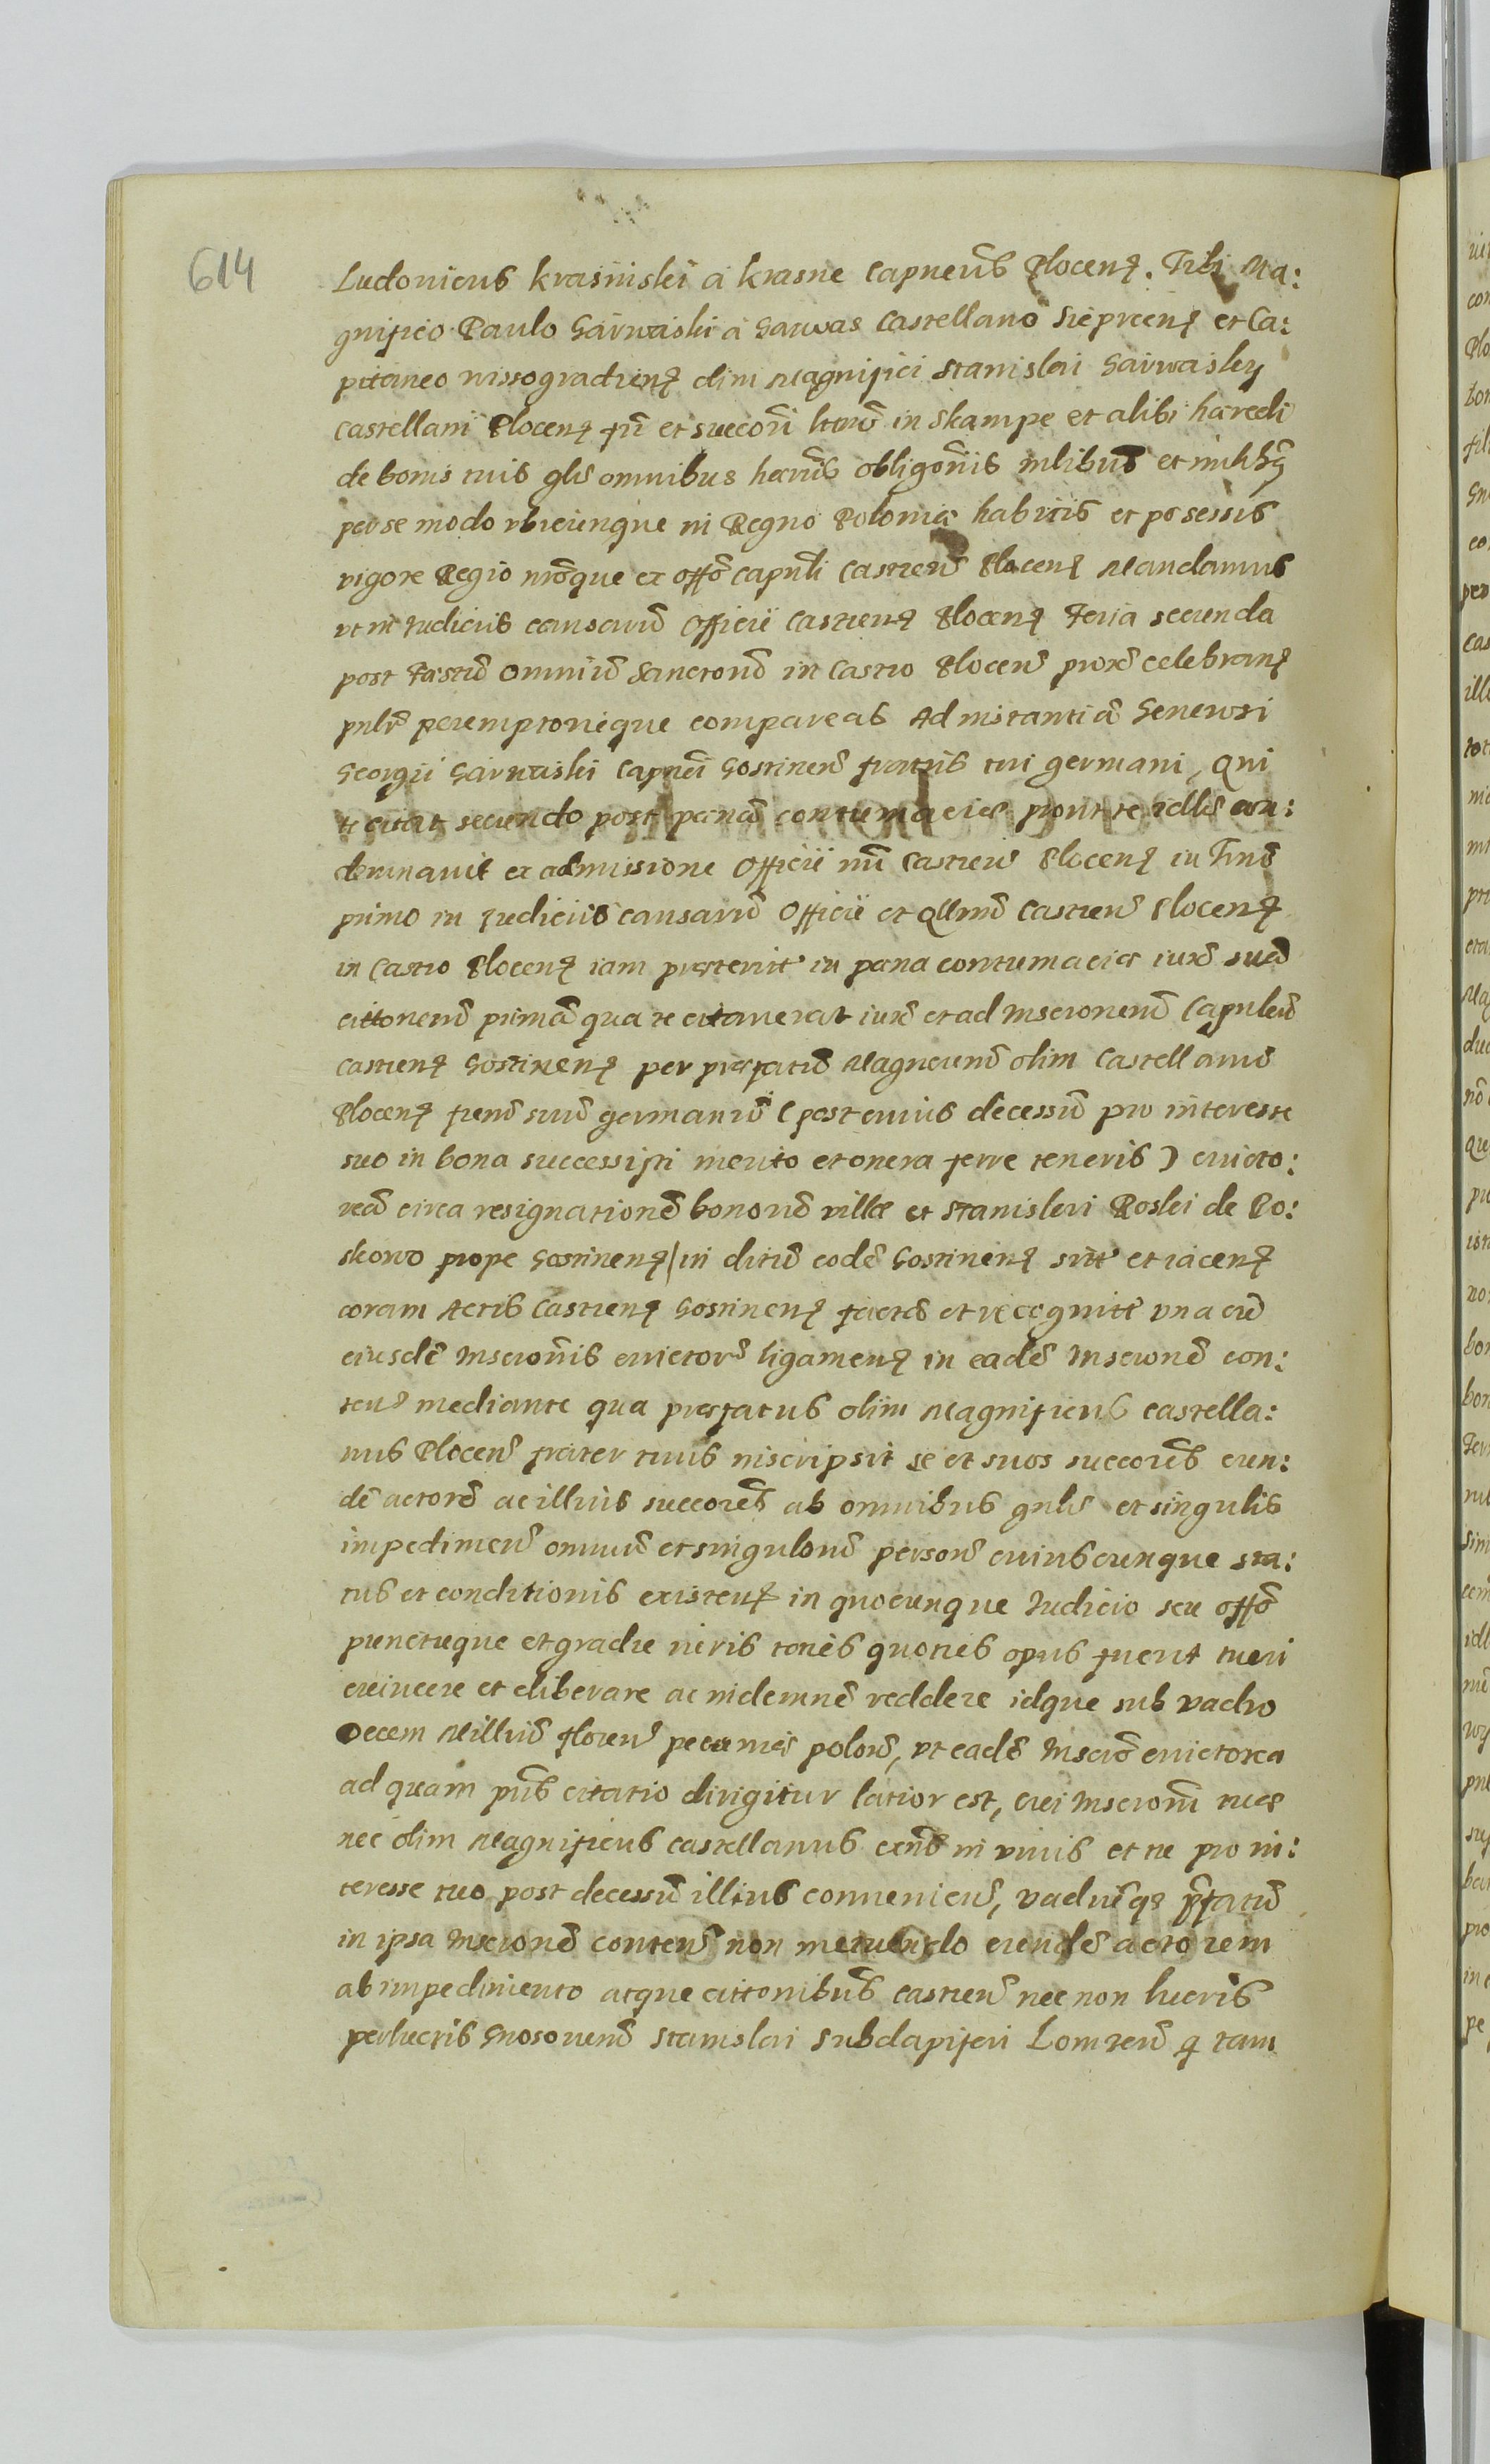 614
Ludovicus Krasinski a Krasne Capneus Plocen. Tibi Ma:
gnifico Paulo Garwaski a Garwas Castellano Sieprcen et Ca:
pitaneo wissogradien olim Magnifici Stanislai Garwasky
Castellani Plocen fri et succori hono in Skampe et alibi haredi
de bonis tuis glis omnibus harus obligonis mlibus et
per se modo vbicunque in Regno Polonia habitis et posessis
vigore Regio nroque ex offo capnli Castren Plocen Mandamus
vt in Iudiciis causaru Officii Castren Plocen Feria secunda
post Festu Omniu Sanctoru in Castro Plocen proxe celebran
pnlr peremptorieque compareas Ad instantia Generosi
Georgii Garwaski Capnei Gostinen fratris tui germani, Qui
te citat secundo post pœna contumaciæ prout te idlr con:
demnavit ex admissione Officii nri Castren Plocen in Trno
primo in Iudiciis causaru Officii et Qllru Castren Plocen
in Castro Plocen iam præterit in pœna contumaciæ iuxe sua
cittonem prima qua te citauerat iuxe et ad Inscronem Capnlem
Castren Gostinen per præfatu Magneum olim Castellanu
Plocen frem suu germanu (post cuius decessu pro interesse
suo in bona successisti merito et onera ferre teneris) euicto:
rea circa resignatione bonoru villæ et Stanislai Roski de Ro:
skowo prope Gostinen in distu eode Gostinen sitæ et iacen
coram Actis Castren Gostinen facta et recognita vna cu
eiusde Inscronis euictore ligamen in eade Inscrone con:
ten mediante qua præfatus olim Magnificus Castella:
nus Plocen frater tuus inscripsit se et suos succores eun:
de actore ac illius succores ab omnibus gnlis et singulis
impedimen omniu et singuloru person cuiuscunque sta:
tus et conditionis existen in quocunque Iudicio seu offo
punctuque et gradu iuris toties quoties opus fuerit tueri
euincere et eliberare ac indemne reddere idque sub vadio
Decem Milliu floren pecuniæ polon, vt eade Inscro euictorea
ad quam pns citatio dirigitur latior est, cui Inscroni tuæ
nec olim Magnificus Castellanus cens in viuis et tu pro in:
teresse tuo post decessu illius conueniens, vadiuqe prefatu
in ipsa Inscrone conten non metuendo eunde actorem
ab impedimento atque cittonibus Castren nec non lucris
perlucris Gnosorum Stanislai Subdapiferi Lomzen q tam